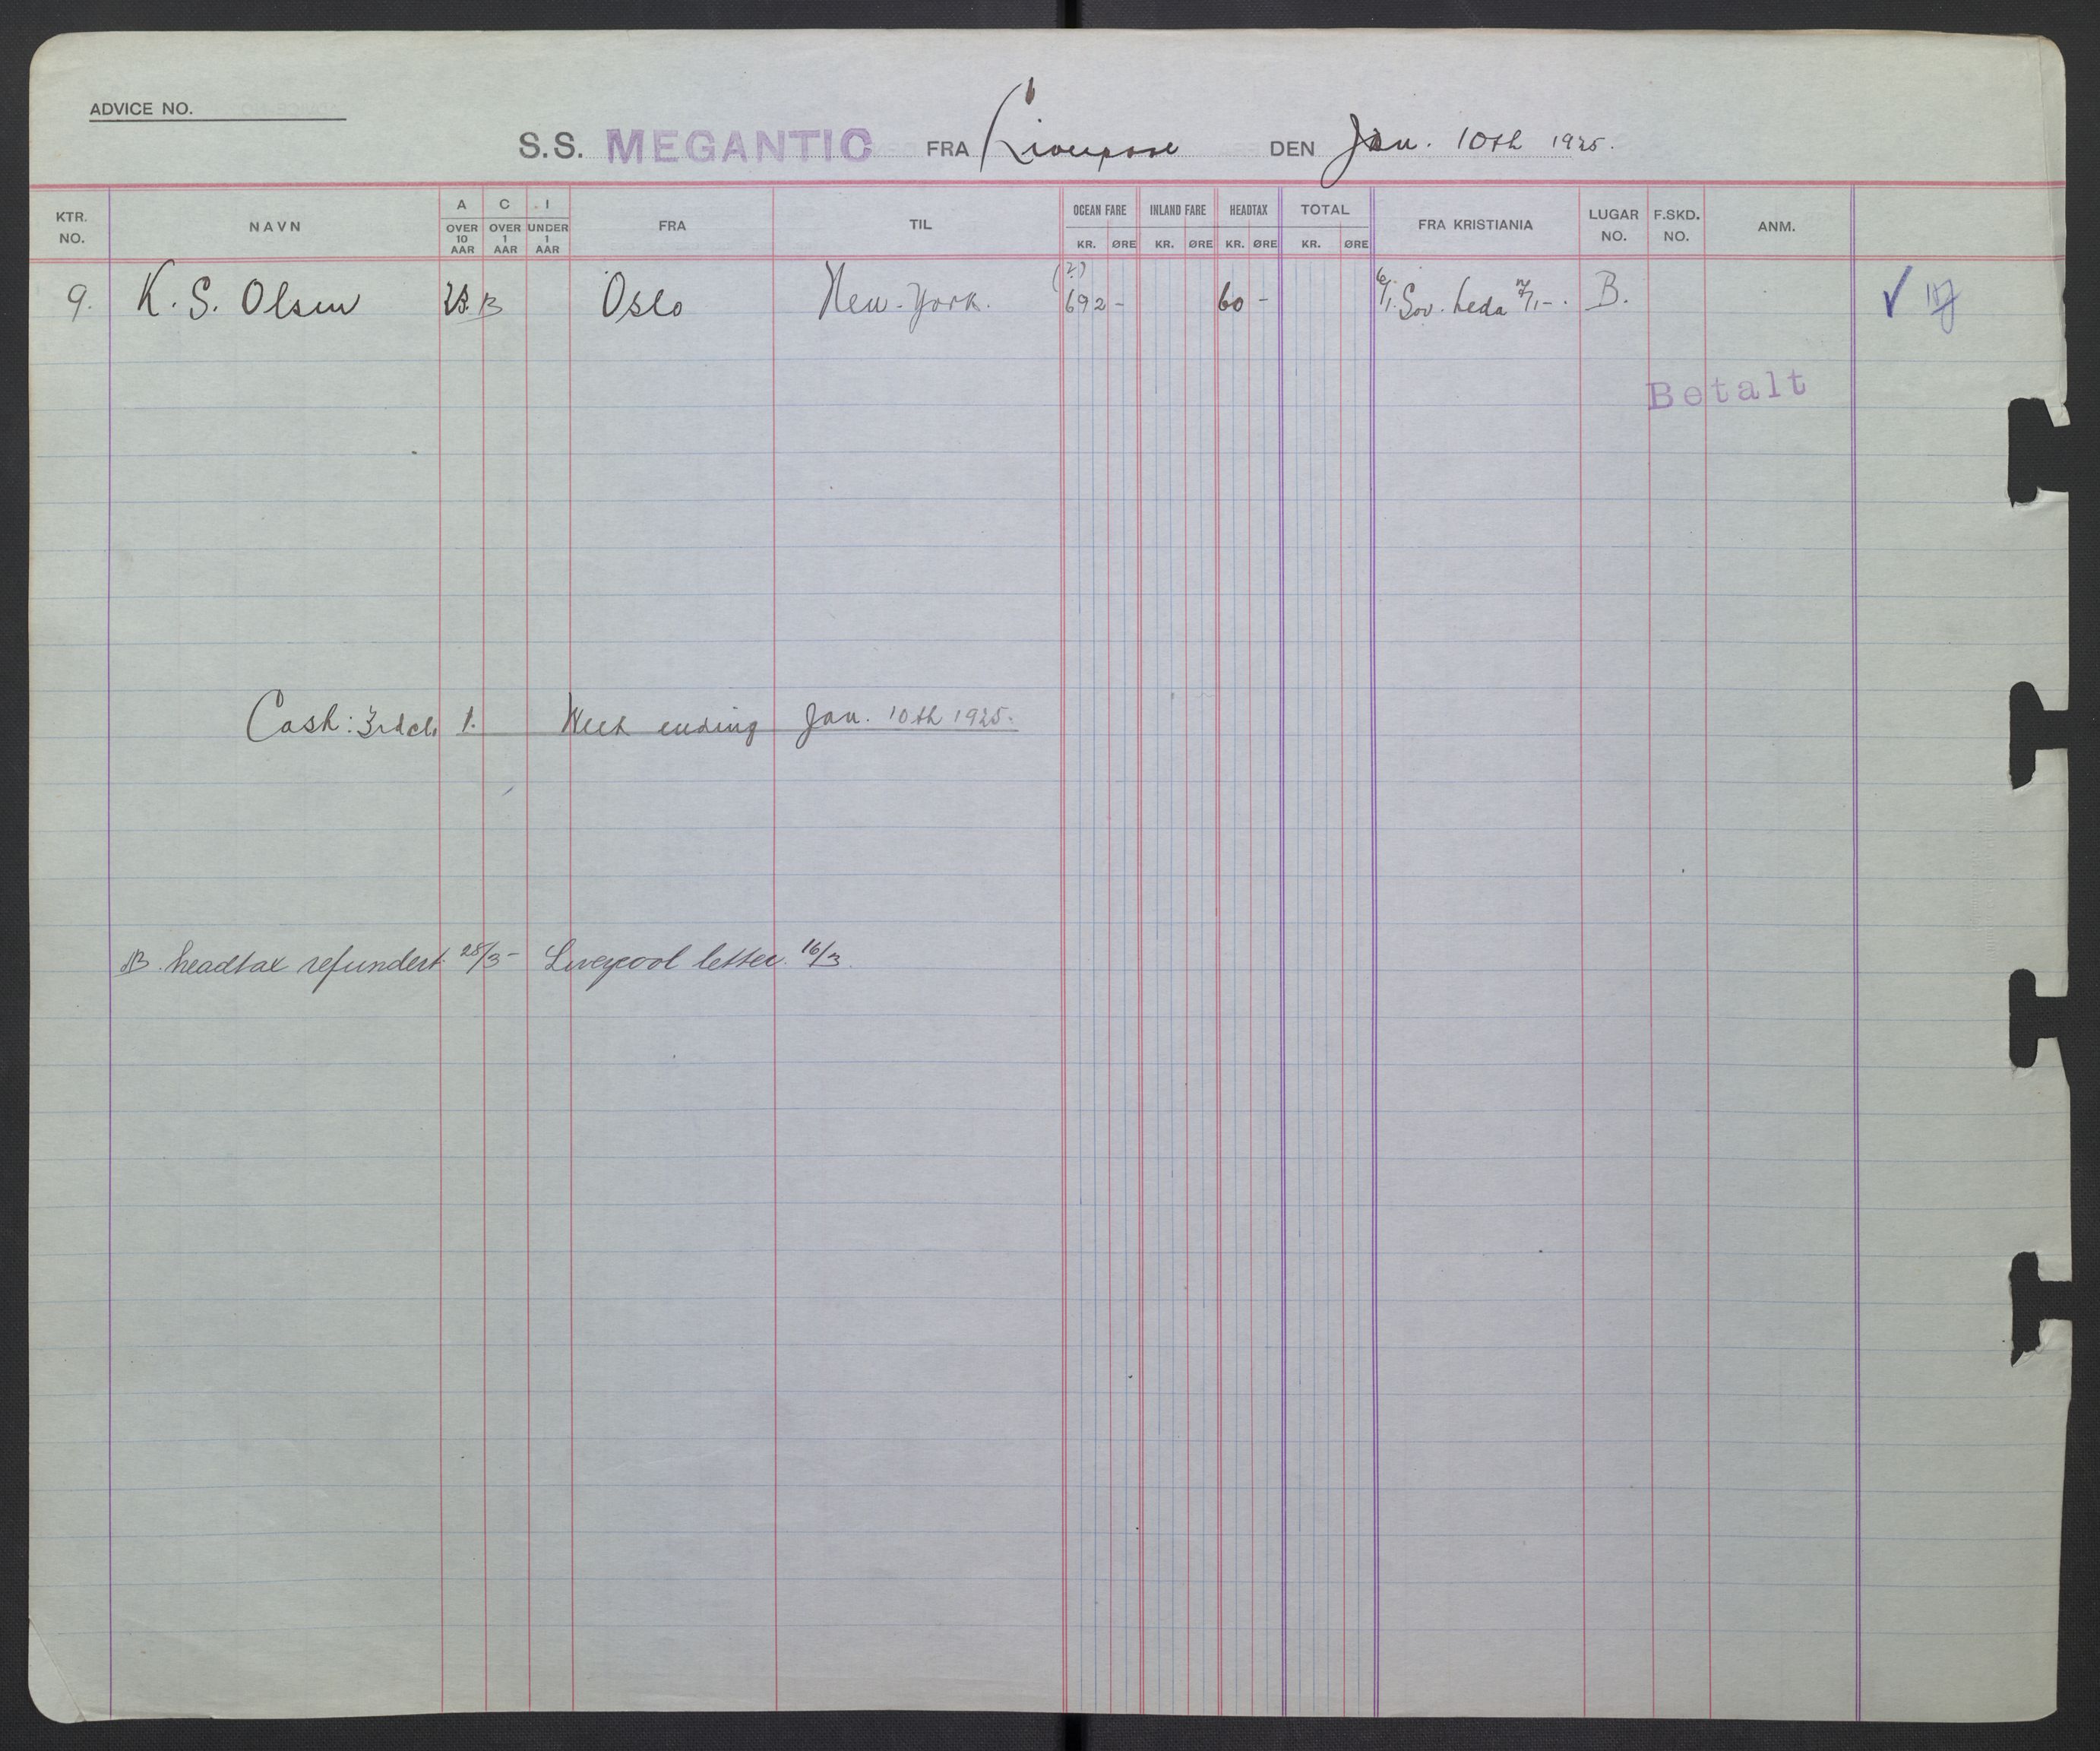 ADVICE NO.
S.S. MEGANTIC FRA Liverpool DEN Jan. 10th 1925.
KTR. NO. NAVN A OVER 10 AAR C OVER 1 AAR I UNDER 1 AAR FRA TIL OCEAN FARE KR. ØRE INLAND FARE KR. ØRE HEADTAX KR. ØRE TOTAL KR. ØRE FRA KRISTIANIA LUGAR NO. F.SKD. NO. ANM.
9. K. S. Olsen Oslo New-York. (2) 692 - 60 - 6/1. Sov. Leda B.
Betalt
Cash: 3rdcl. 1. Week ending Jan. 10th 1925.
headtax refundert 28/3 - Liverpool letter. 16/3.